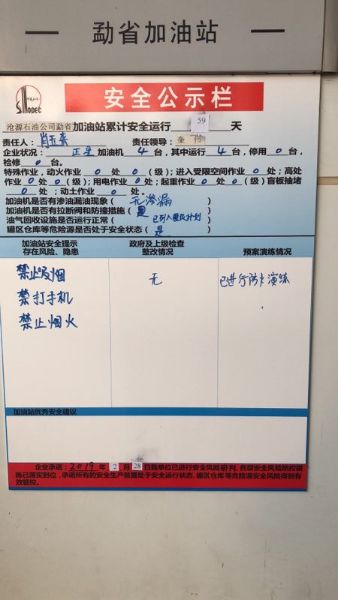 勐省加油站
安全公示栏
沧源石油公司勐省加油站累计安全运行 59 天
责任人: 责任领导:
企业状况: 正常 加油机 4 台,其中运行 4 台,停用 0 台,
检修 0 台。
特殊作业,动火作业 0 处 0 (级);进入受限空间作业 0 处;高处
作业 0 处 0 (级);用电作业 0 处;起重作业 0 处 0 (级)盲板抽堵
0 处;动土作业 0 处。
加油机是否有渗油漏油现象( 无渗漏 )
加油机是否有拉断阀和防撞措施( 是 )
油气回收设施是否运行正常( 已列入整改计划 )
罐区仓库等危险源是否处于安全状态( 是 )
加油站安全提示
存在风险、隐患
政府及上级检查
整改情况
预案演练情况
禁止吸烟
禁打手机
禁止烟火
无
已进行防卡演练
加油站优秀安全建议
企业承诺:2019 年 2 月 28 日我单位已进行安全风险研判,各项安全风险防控措
施已落实到位,承诺所有的安全生产装置处于安全运行状态,罐区仓库等危险源安全风险得到有
效管控。